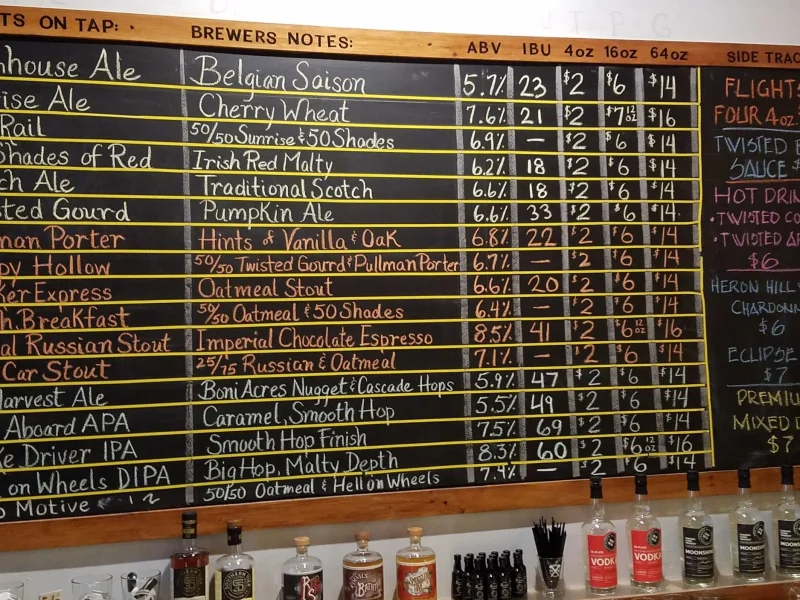 TS ON TAP: BREWERS NOTES: ABV IBU 4oz 16oz 64oz
nhouse Ale Belgian Saison 5.7% 23 $2 $6 $14
ise Ale Cherry Wheat 7.6% 21 $2 $7 12oz $16
Rail 50/50 Sunrise & 50 Shades 6.9% — $2 $6 $14
Shades of Red Irish Red Malty 6.2% 18 $2 $6 $14
ch Ale Traditional Scotch 6.6% 18 $2 $6 $14
ted Gourd Pumpkin Ale 6.6% 33 $2 $6 $14
man Porter Hints of Vanilla & Oak 6.8% 22 $2 $6 $14
py Hollow 50/50 Twisted Gourd & Pullman Porter 6.7% — $2 $6 $14
ker Express Oatmeal Stout 6.6% 20 $2 $6 $14
h. Breakfast 50/50 Oatmeal & 50 Shades 6.4% — $2 $6 $14
al Russian Stout Imperial Chocolate Espresso 8.5% 41 $2 $6 12oz $16
Car Stout 25/75 Russian & Oatmeal 7.1% — $2 $6 $14
Harvest Ale Boni Acres Nugget & Cascade Hops 5.9% 47 $2 $6 $14
Aboard APA Caramel, Smooth Hop 5.5% 49 $2 $6 $14
ke Driver IPA Smooth Hop Finish 7.5% 69 $2 $6 $14
on Wheels DIPA Big Hop, Malty Depth 8.3% 60 $2 $6 12oz $16
o Motive 50/50 Oatmeal & Hell on Wheels 7.4% — $2 $6 $14
SIDE TRAC
FLIGHTS
FOUR 4oz
TWISTED
SAUCE $
HOT DRIN
• TWISTED CO
• TWISTED AP
$6
HERON HILL
CHARDONN
$6
ECLIPSE
$7
PREMIU
MIXED D
$7
VODKA
VODKA
MOONSHINE
MOONSHI
MOONS